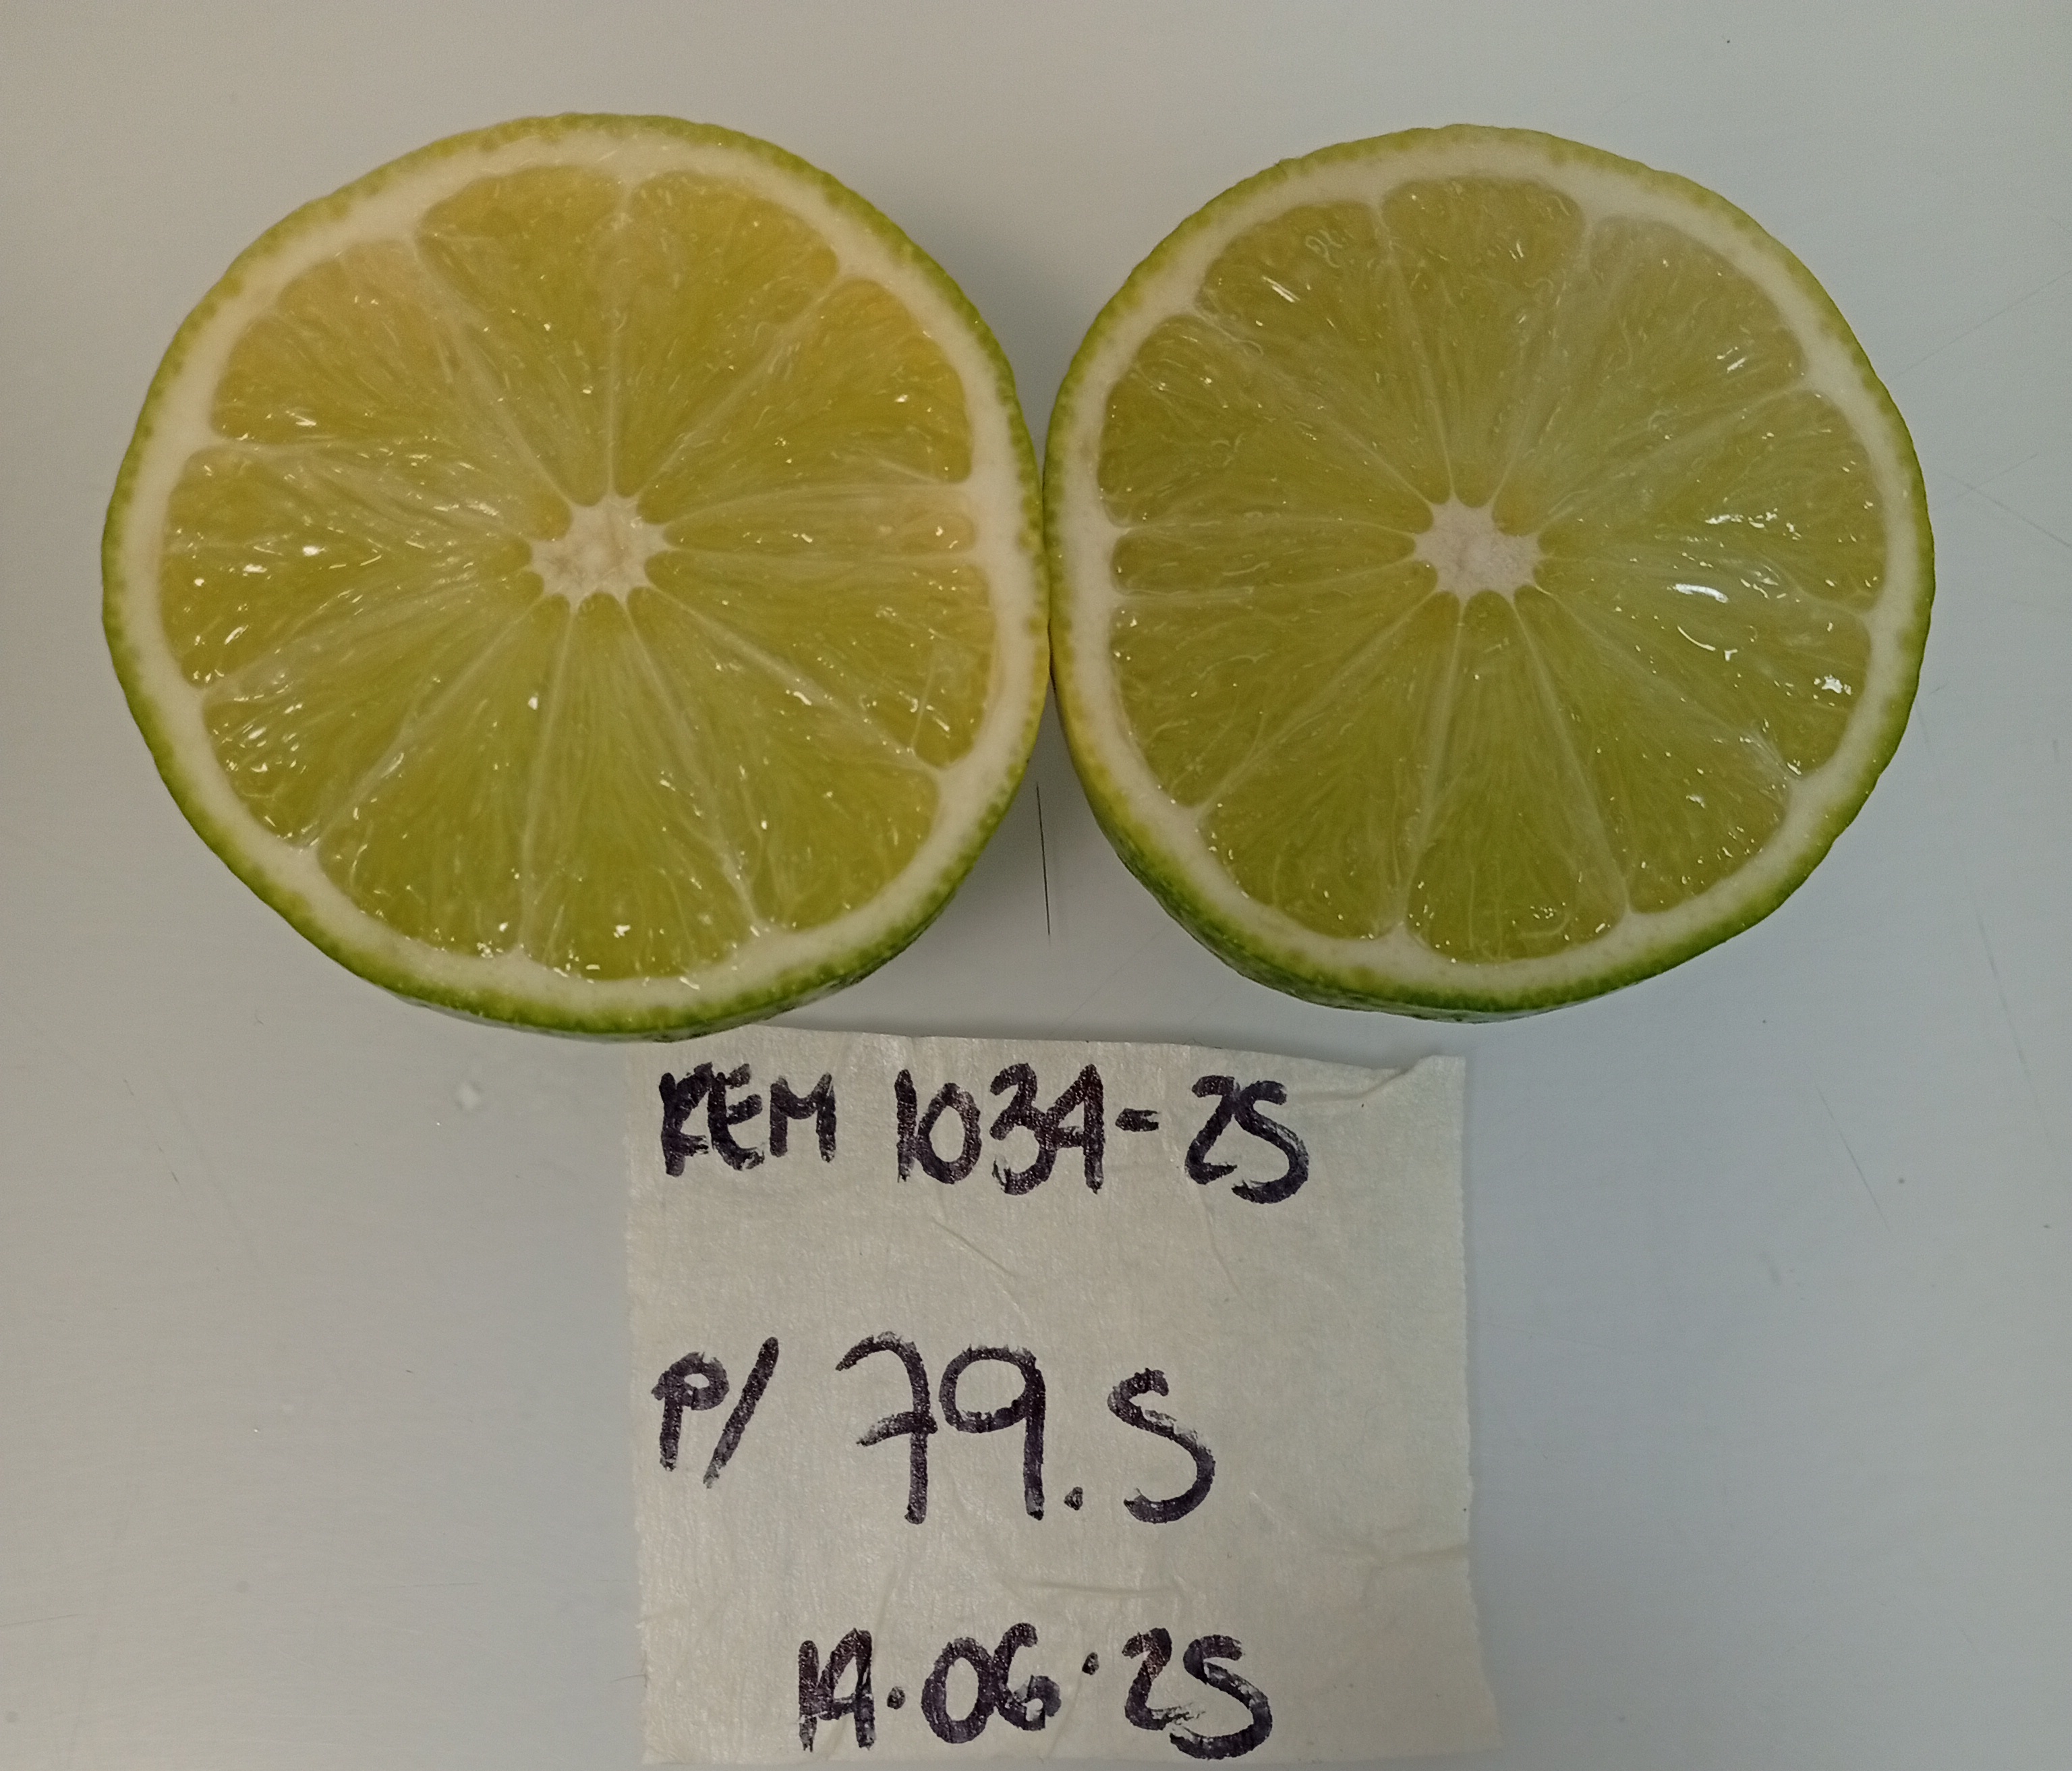 REM 1034-25
P/ 79.5
19.06.25